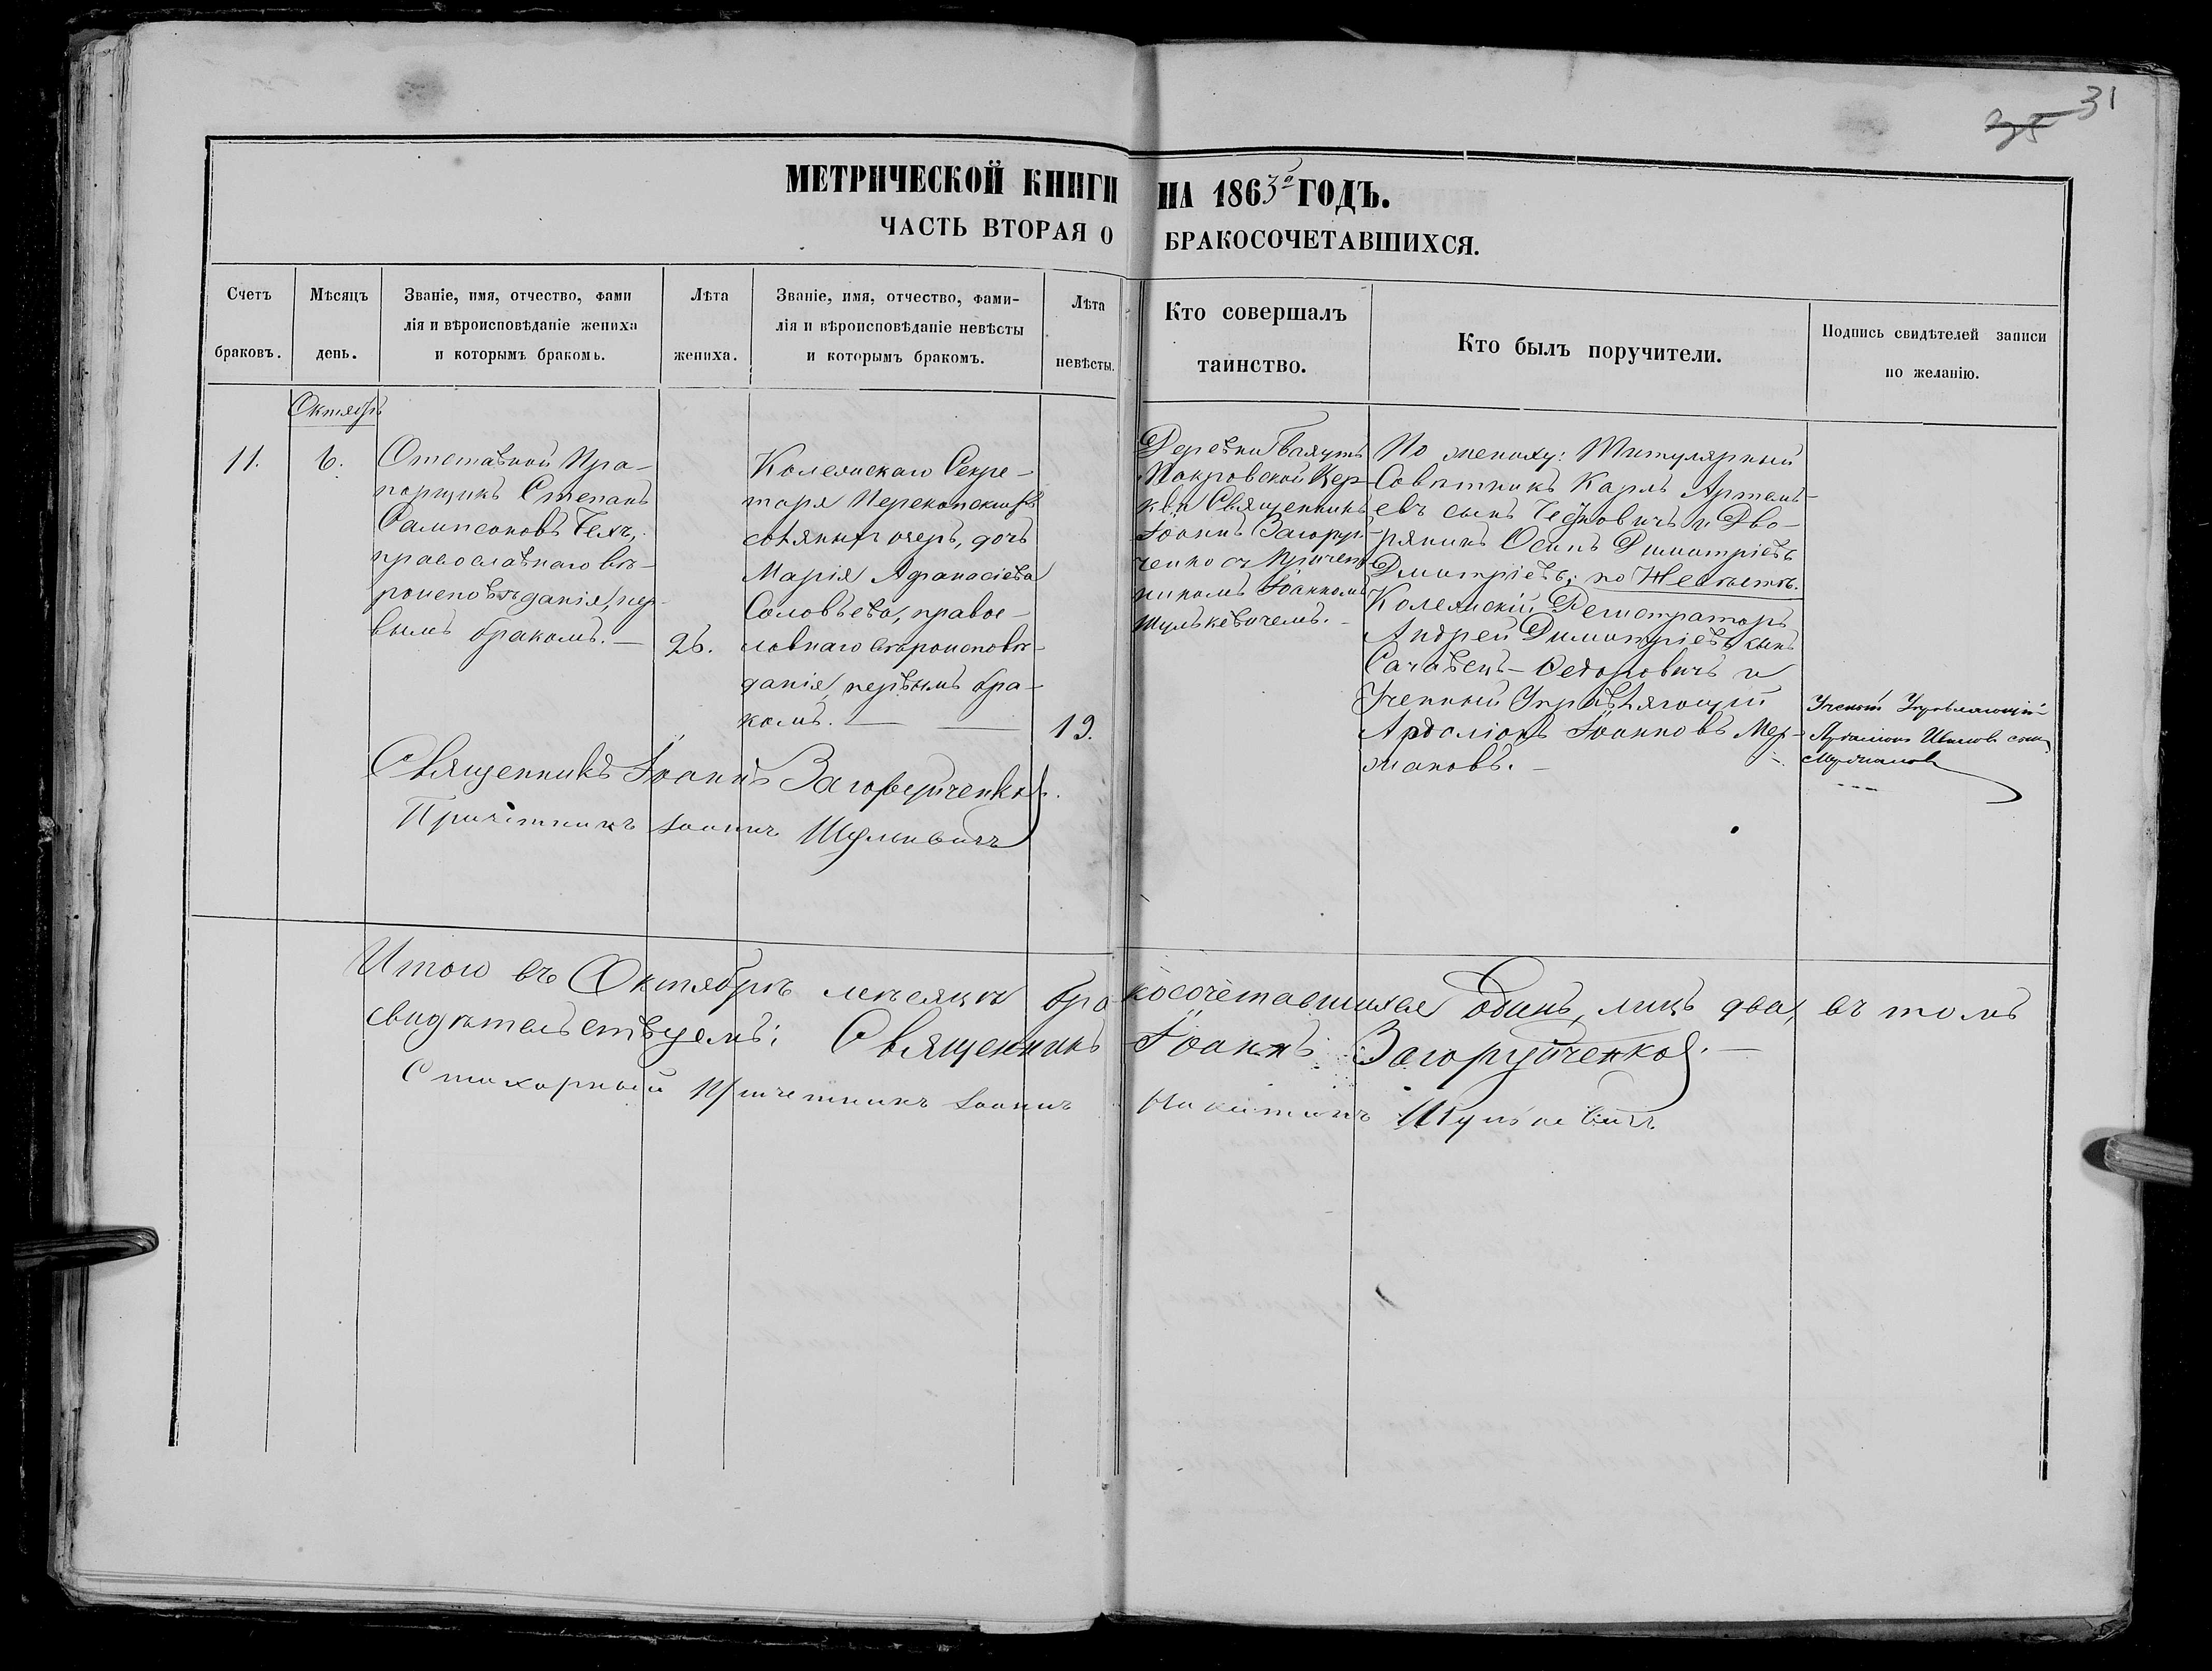 31
МЕТРИЧЕСКОЙ КНИГИ НА 1863º ГОДЪ.
ЧАСТЬ ВТОРАЯ О БРАКОСОЧЕТАВШИХСЯ.
Счетъ
браковъ.
Мѣсяцъ
день.
Званіе, имя, отчество, фами
лія и вѣроисповѣданіе жениха
и которымъ бракомъ.
Лѣта
жениха.
Званіе, имя, отчество, фами-
лія и вѣроисповѣданіе невѣсты
и которымъ бракомъ.
Лѣта
невѣсты.
Кто совершалъ
таинство.
Кто былъ поручители.
Подпись свидѣтелей записи
по желанію.
Октябрь
11.
6.
Отставной Пра-
порщикъ Степанъ
Сампсоновъ
православнаго вѣ-
роисповѣданія, пер-
вымъ бракомъ. —
26.
Колежскаго Секре-
таря
дочь
Марія Афанасіева
Соловьева, правос-
лавнаго вѣроисповѣ-
данія, первымъ бра-
комъ. —
19.
Деревни
Покровской Цер-
кви Священникъ
Іоаннъ Загоруй-
ченко съ Причет-
никомъ Іоанномъ
Шулькевичемъ. -
По жениху: Титулярный
Совѣтникъ Карлъ Артемь-
евъ сынъ и Дво-
рянинъ Осипъ Димитріевъ
Дмитріевъ; по Невѣстѣ.
Колежскій Регистраторъ
Андрей Димитріевъ сынъ
Федоровичъ и
Ученый Управляющій
Ардаліонъ Іоанновъ Мер-
жановъ. —
Ученый Управляющій
Ардаліонъ Ивановъ сынъ
Мержановъ
Священникъ Іоаннъ Загоруйченко.
Причетникъ Іоаннъ Шулькевичъ
Итого въ Октябрѣ мѣсяцѣ бракосочетавшихся Одинъ, лицъ два, въ томъ
свидѣтельствуемъ: Священникъ Іоаннъ Загоруйченко. —
Стихарный Причетникъ Іоаннъ Никитинъ Шулькевичъ